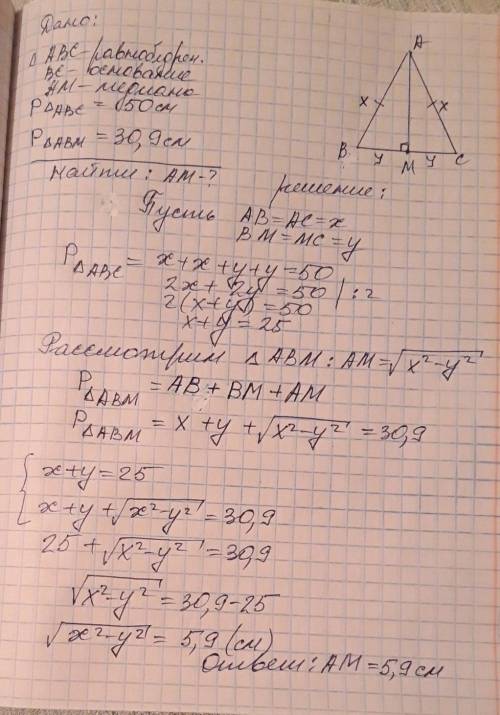 Дано:
△ABC - равнобедрен.
BC - основание
AM - медиана
P△ABC = 50см
P△ABM = 30,9см
Найти: AM-?
A
x x
B y M y C
решение:
Пусть AB=AC=x
BM=MC=y
P△ABC = x+x+y+y=50
2x+2y=50 | :2
2(x+y)=50
x+y=25
Рассмотрим △ABM: AM=√x²-y²
P△ABM = AB+BM+AM
P△ABM = x+y+√x²-y² =30,9
{ x+y=25
x+y+√x²-y² =30,9
25+√x²-y² =30,9
√x²-y² =30,9-25
√x²-y² = 5,9 (см)
Ответ: AM=5,9см